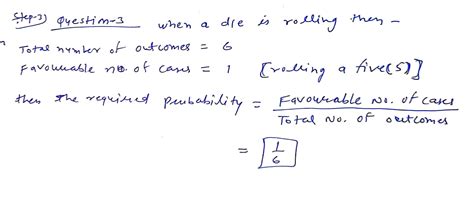 Step-3) Question-3 when a die is rolling then -
Total number of outcomes = 6
Favourable no. of cases = 1 [rolling a five(5)]
then the required probability = Favourable No. of cases
Total No. of outcomes
= 1
6